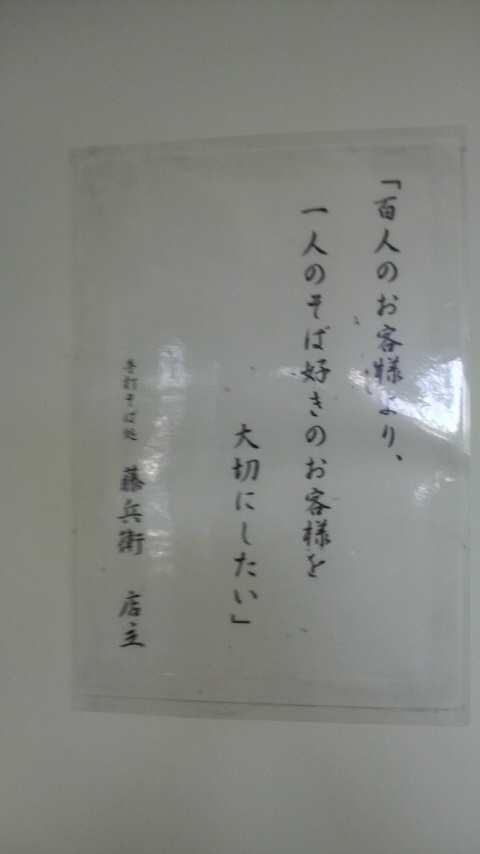 「百人のお客様より、
一人のそば好きのお客様を
大切にしたい」
手打そば処 藤兵衛 店主